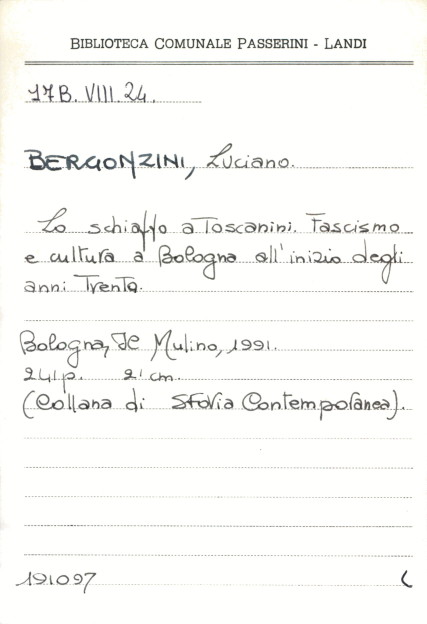 BIBLIOTECA COMUNALE PASSERINI - LANDI
17B. VIII. 24.
BERGONZINI, Luciano.
Lo schiaffo a Toscanini. Fascismo
e cultura a Bologna all'inizio degli
anni Trenta.
Bologna, Il Mulino, 1991.
241 p. 21 cm.
(Collana di Storia Contemporanea).
191097